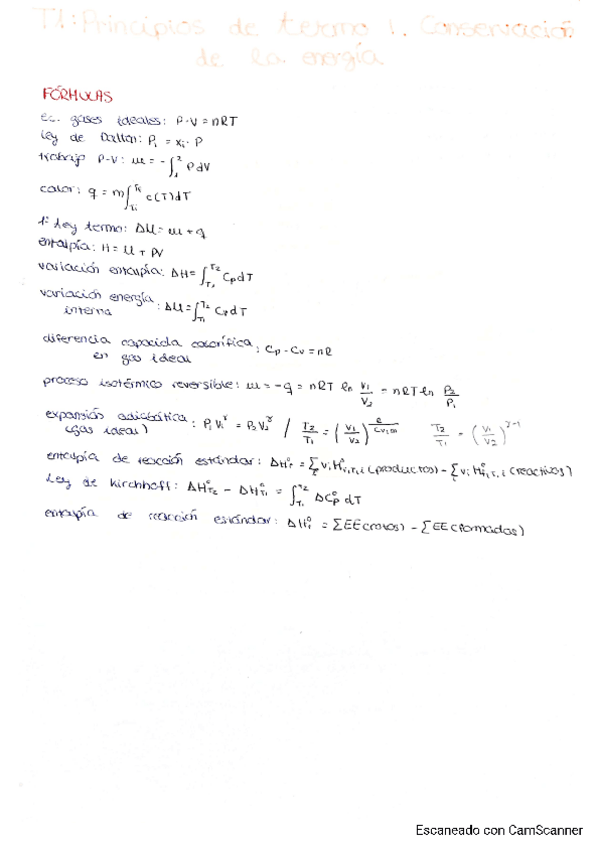 T1: Principios de termo 1. Conservación
de la energía
FÓRMULAS
Ec. gases ideales: P·V = nRT
Ley de Dalton: Pᵢ = xᵢ · P
trabajo P-V: w = -∫₁² P dV
calor: q = m∫_{Tᵢ}^{T_f} c(T) dT
1ª Ley termo: ΔU = w + q
entalpía: H = U + PV
variación entalpía: ΔH = ∫_{T₁}^{T₂} Cp dT
variación energía interna : ΔU = ∫_{T₁}^{T₂} Cp dT
diferencia capacida calorífica en gas ideal : Cp - Cv = nR
proceso isotérmico reversible: w = -q = nRT ln V₁/V₂ = nRT ln P₂/P₁
expansión adiabática (gas ideal) : P₁V₁^γ = P₂V₂^γ / T₂/T₁ = (V₁/V₂)^{R/Cv,m} T₂/T₁ = (V₁/V₂)^{γ-1}
entalpía de reacción estándar: ΔH°_T = Σ νᵢ H°_{T,i} (productos) - Σ νᵢ H°_{T,i} (reactivos)
Ley de Kirchhoff: ΔH°_{T₂} - ΔH°_{T₁} = ∫_{T₁}^{T₂} ΔC°p dT
entalpía de reacción estándar: ΔH°_T = ΣEE(rotos) - ΣEE(formados)
Escaneado con CamScanner